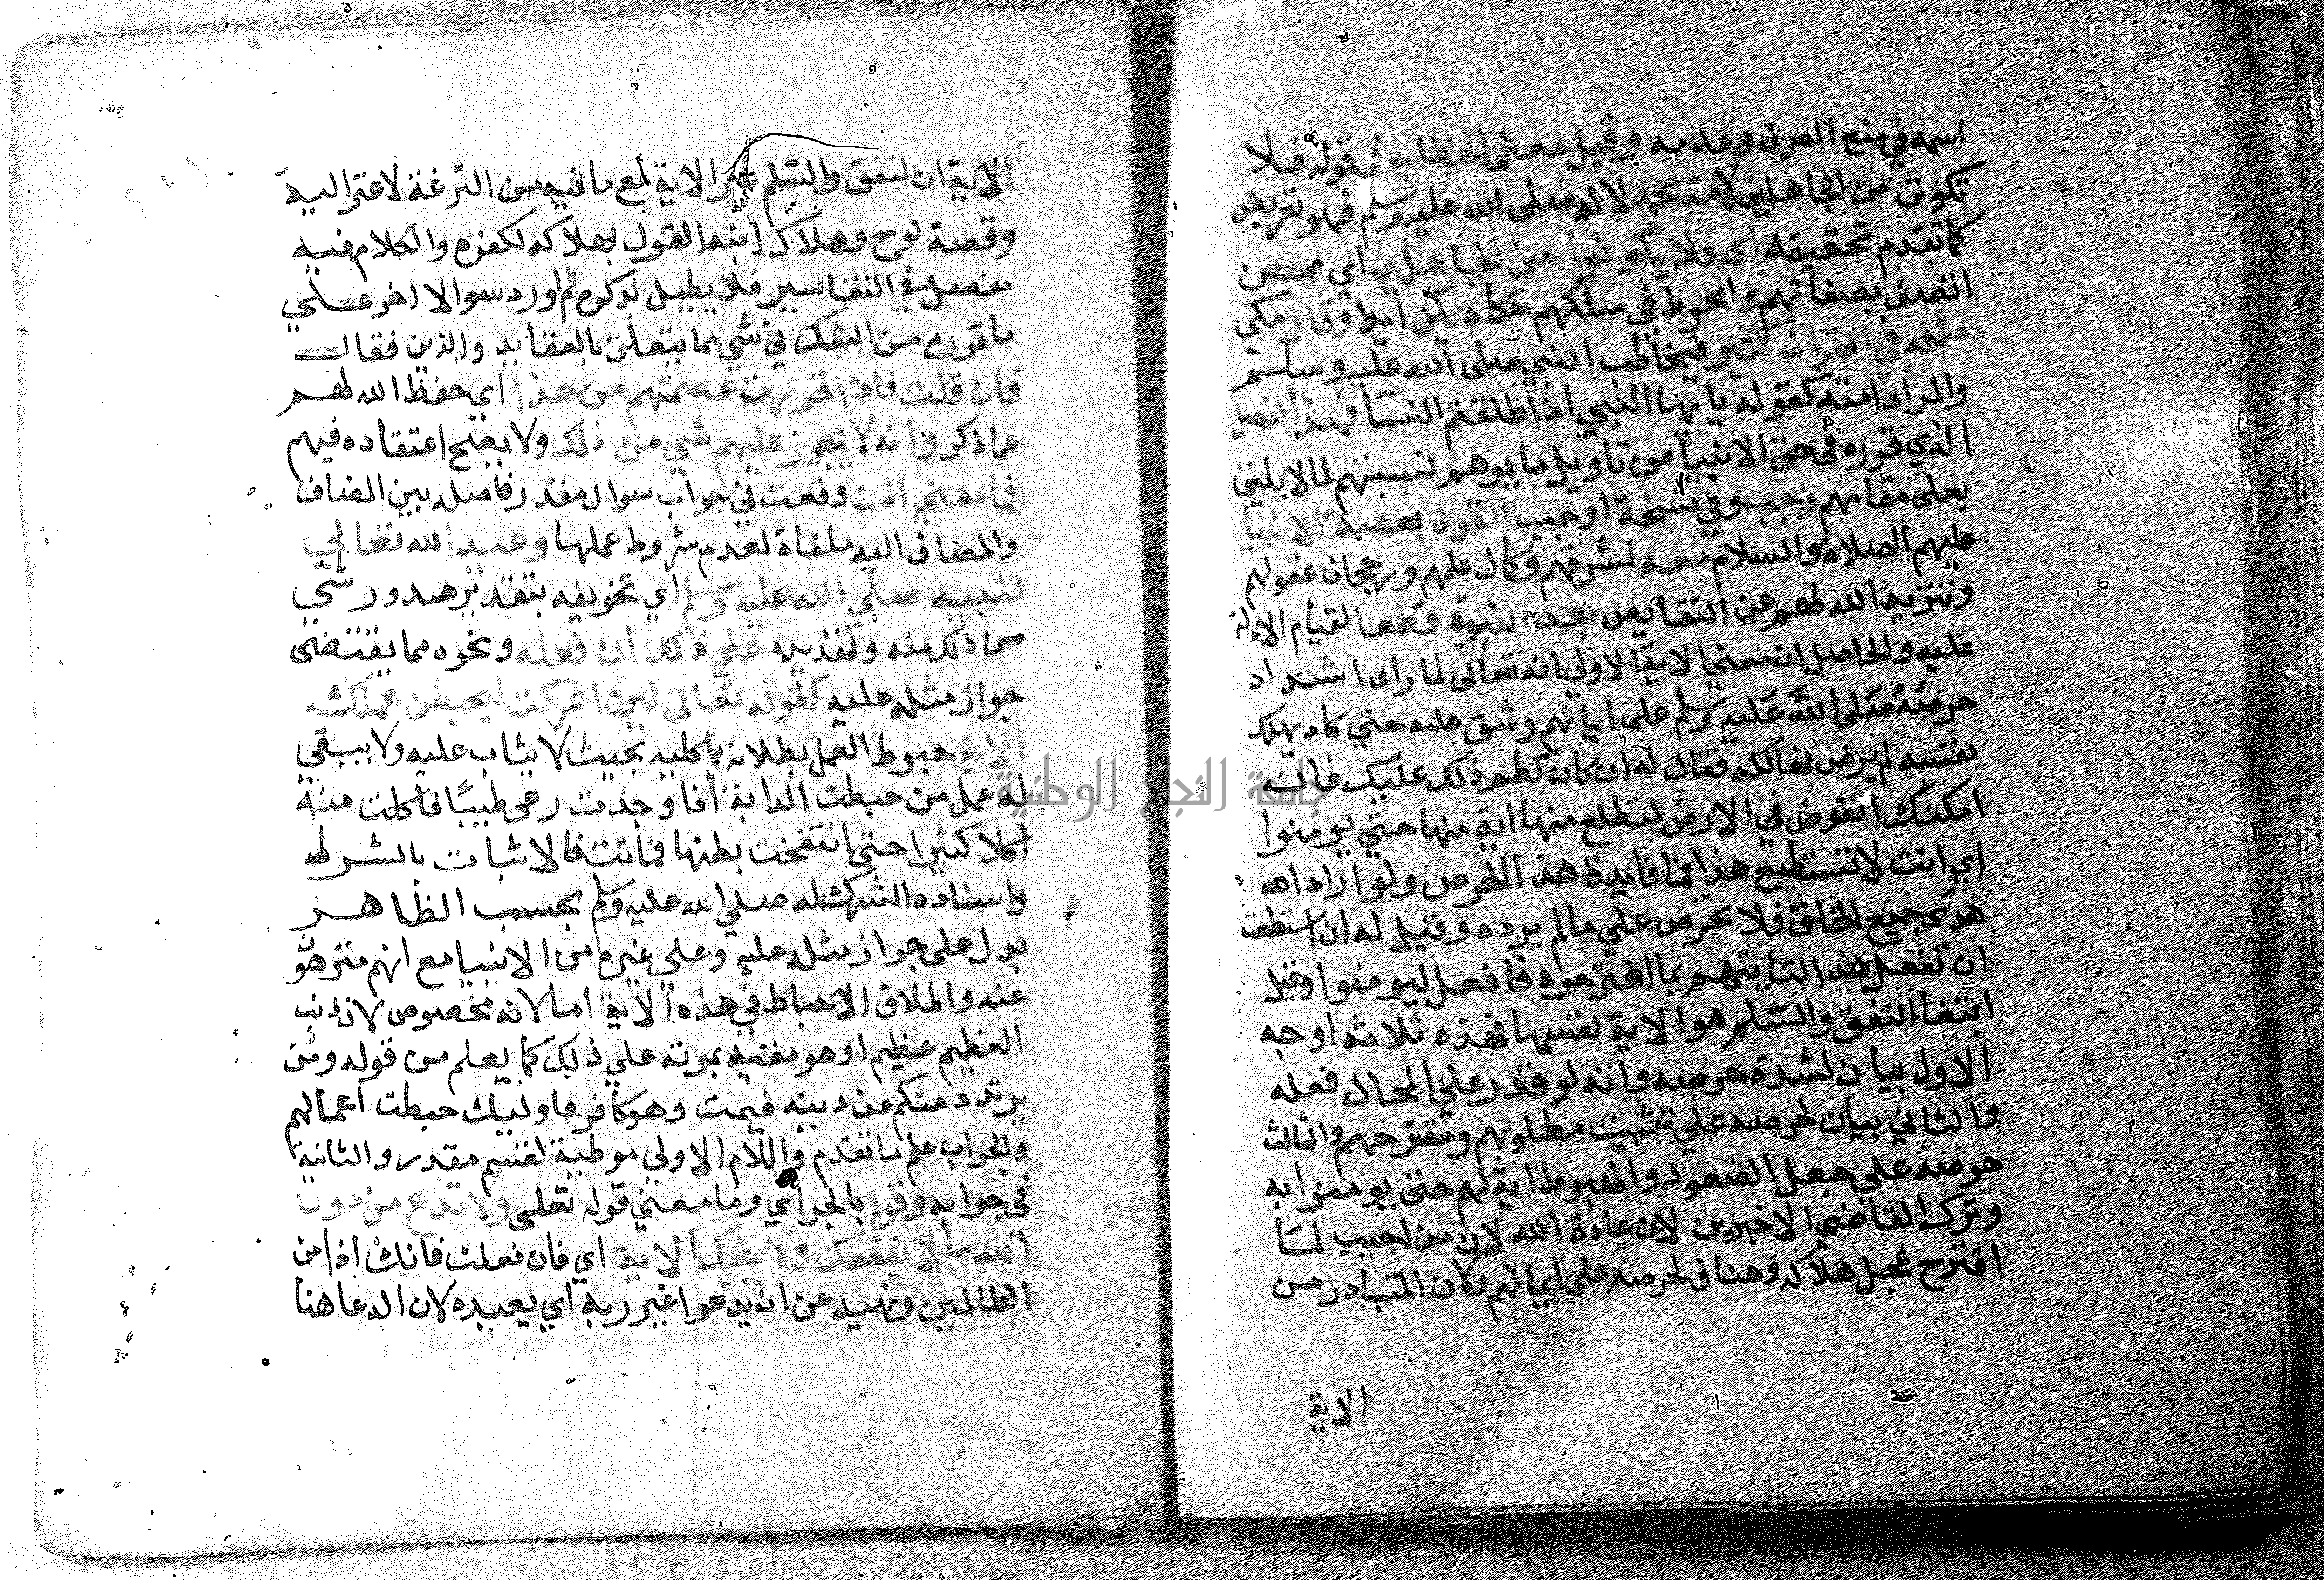 اسمه في منع الصرف وعدمه وقيل معنى الخطاب في قوله فلا
تكونن من الجاهلين لامة محمد لا له صلى الله عليه وسلم فهو تعريض
كما تقدم تحقيقه اى فلا يكونوا من الجاهلين اي ممن
اتصف بصفاتهم وانخرط في سلكهم حكاه مكي ايضا وقال مكي
مثله في القران كثير فيخاطب النبي صلى الله عليه وسلم
والمراد امته كقوله يا يها النبي اذا طلقتم النسآ فهذا الفصل
الذي قرره في حق الانبيآ من تاويل ما يوهم نسبتهم لما لا يليق
بعلى مقامهم وجب وفي نسخة اوجب القول بعصمة الانبيا
عليهم الصلاة والسلام معه لشرفهم وكمال علمهم ورجحان عقولهم
وتنزيه الله لهم عن النقايص بعد النبوة قطعا لقيام الادلة
عليه والحاصل ان معنى الاية الاولي انه تعالى لما راى اشتداد
حرصه صلى الله عليه وسلم على ايمانهم وشق عليه حتي كاد يهلك
نفسه لم يرض ذلك فقال له ان كان كظم ذلك عليك فان
امكنك الغوض في الارض لتطلع منها اية منها حتي يومنوا
اي انت لا تستطيع هذا فما فايدة هذا الحرص ولو اراد الله
هدى جميع الخلق فلا تحرص علي ما لم يرده وقيل له ان استطعت
ان تفعل هذا لتايتهم بما اقترحوه فافعل ليومنوا وقيل
ابتغا النفق والسلم هوا لاية نفسها فهذه ثلاثه اوجه
الاول بيان لشدة حرصه وانه لو قدر علي المحال فعله
والثاني بيان لحرصه علي تثبيت مطلوبهم ومقترحهم والثالث
حرصه علي جعل الصعود والهبوط اية لهم حتى يومنوا به
وترك القاضي الاخيرين لان عادة الله لان من اجيب لما
اقترح عجل هلاكه وهناف لحرصه على ايمانهم وكان المتبادر من
الاية
الاية ان لنفق والسلم غير الاية مع ما فيه من النزغة لاعتزاليه
وقصة نوح وهلاك ابنه القول بهلاكه لكفره والكلام فيه
مفصل في التفاسير فلا يطيل بذكره ثم اورد سوالا اخر علي
ما قرره من الشك في شي مما يتعلق بالعقايد والدين فقال
فان قلت فاذا قررت عصمتهم من هذا اي حفظ الله لهم
عما ذكر وانه لا يجوز عليهم شي من ذلك ولا يصح اعتقاده فيهم
فما معني اذن وقعت في جواب سوال مقدر فاصله بين المضاف
والمضاف اليه ملغاة لعدم شروط عملها وعيد الله تعالي
لنبيه صلي الله عليه وسلم اي تخويفه بتقدير صدور شي
مما ذكر منه وتهديده علي ذلك ان فعله ونحوه مما يقتضى
جواز مثله عليه كقوله تعالى لين اشركت ليحبطن عملك
الاية حبوط العمل بطلانه بالكليه بحيث لا يثاب عليه ولا يبقي
له عمل من حبطت الدابة اذا وجدت رعى طيبًا فاكلت منه
اكلا كثيرا حتى انتفخت بطنها فماتت فالاثبات بالشرط
واسناده الشرك له صلي الله عليه وسلم بحسب الظاهر
يدل على جواز مثله عليه وعلي غيره من الانبيا مع انهم منزهو
عنه واطلاق الاحباط في هذه الاية اما لانه مخصوص لان ذنب
العظيم عظيم او هو مقيد بموته علي ذلك كما يعلم من قوله ومن
يرتدد منكم عن دينه فيمت وهو كافر فاوليك حبطت اعمالهم
والجواب علم ما تقدم واللام الاولي موطية لقسم مقدر والثانية
في جوابه وقوله بالجر اي وما معني قوله تعلى ولا تدع من دون
الله ما لا ينفعك ولا يضرك الاية اي فان فعلت فانك اذا من
الظالمين ونهيه عن ان يدعوا غير ربه اي يعبده لان الدعا هنا
جامعة النجاح الوطنية